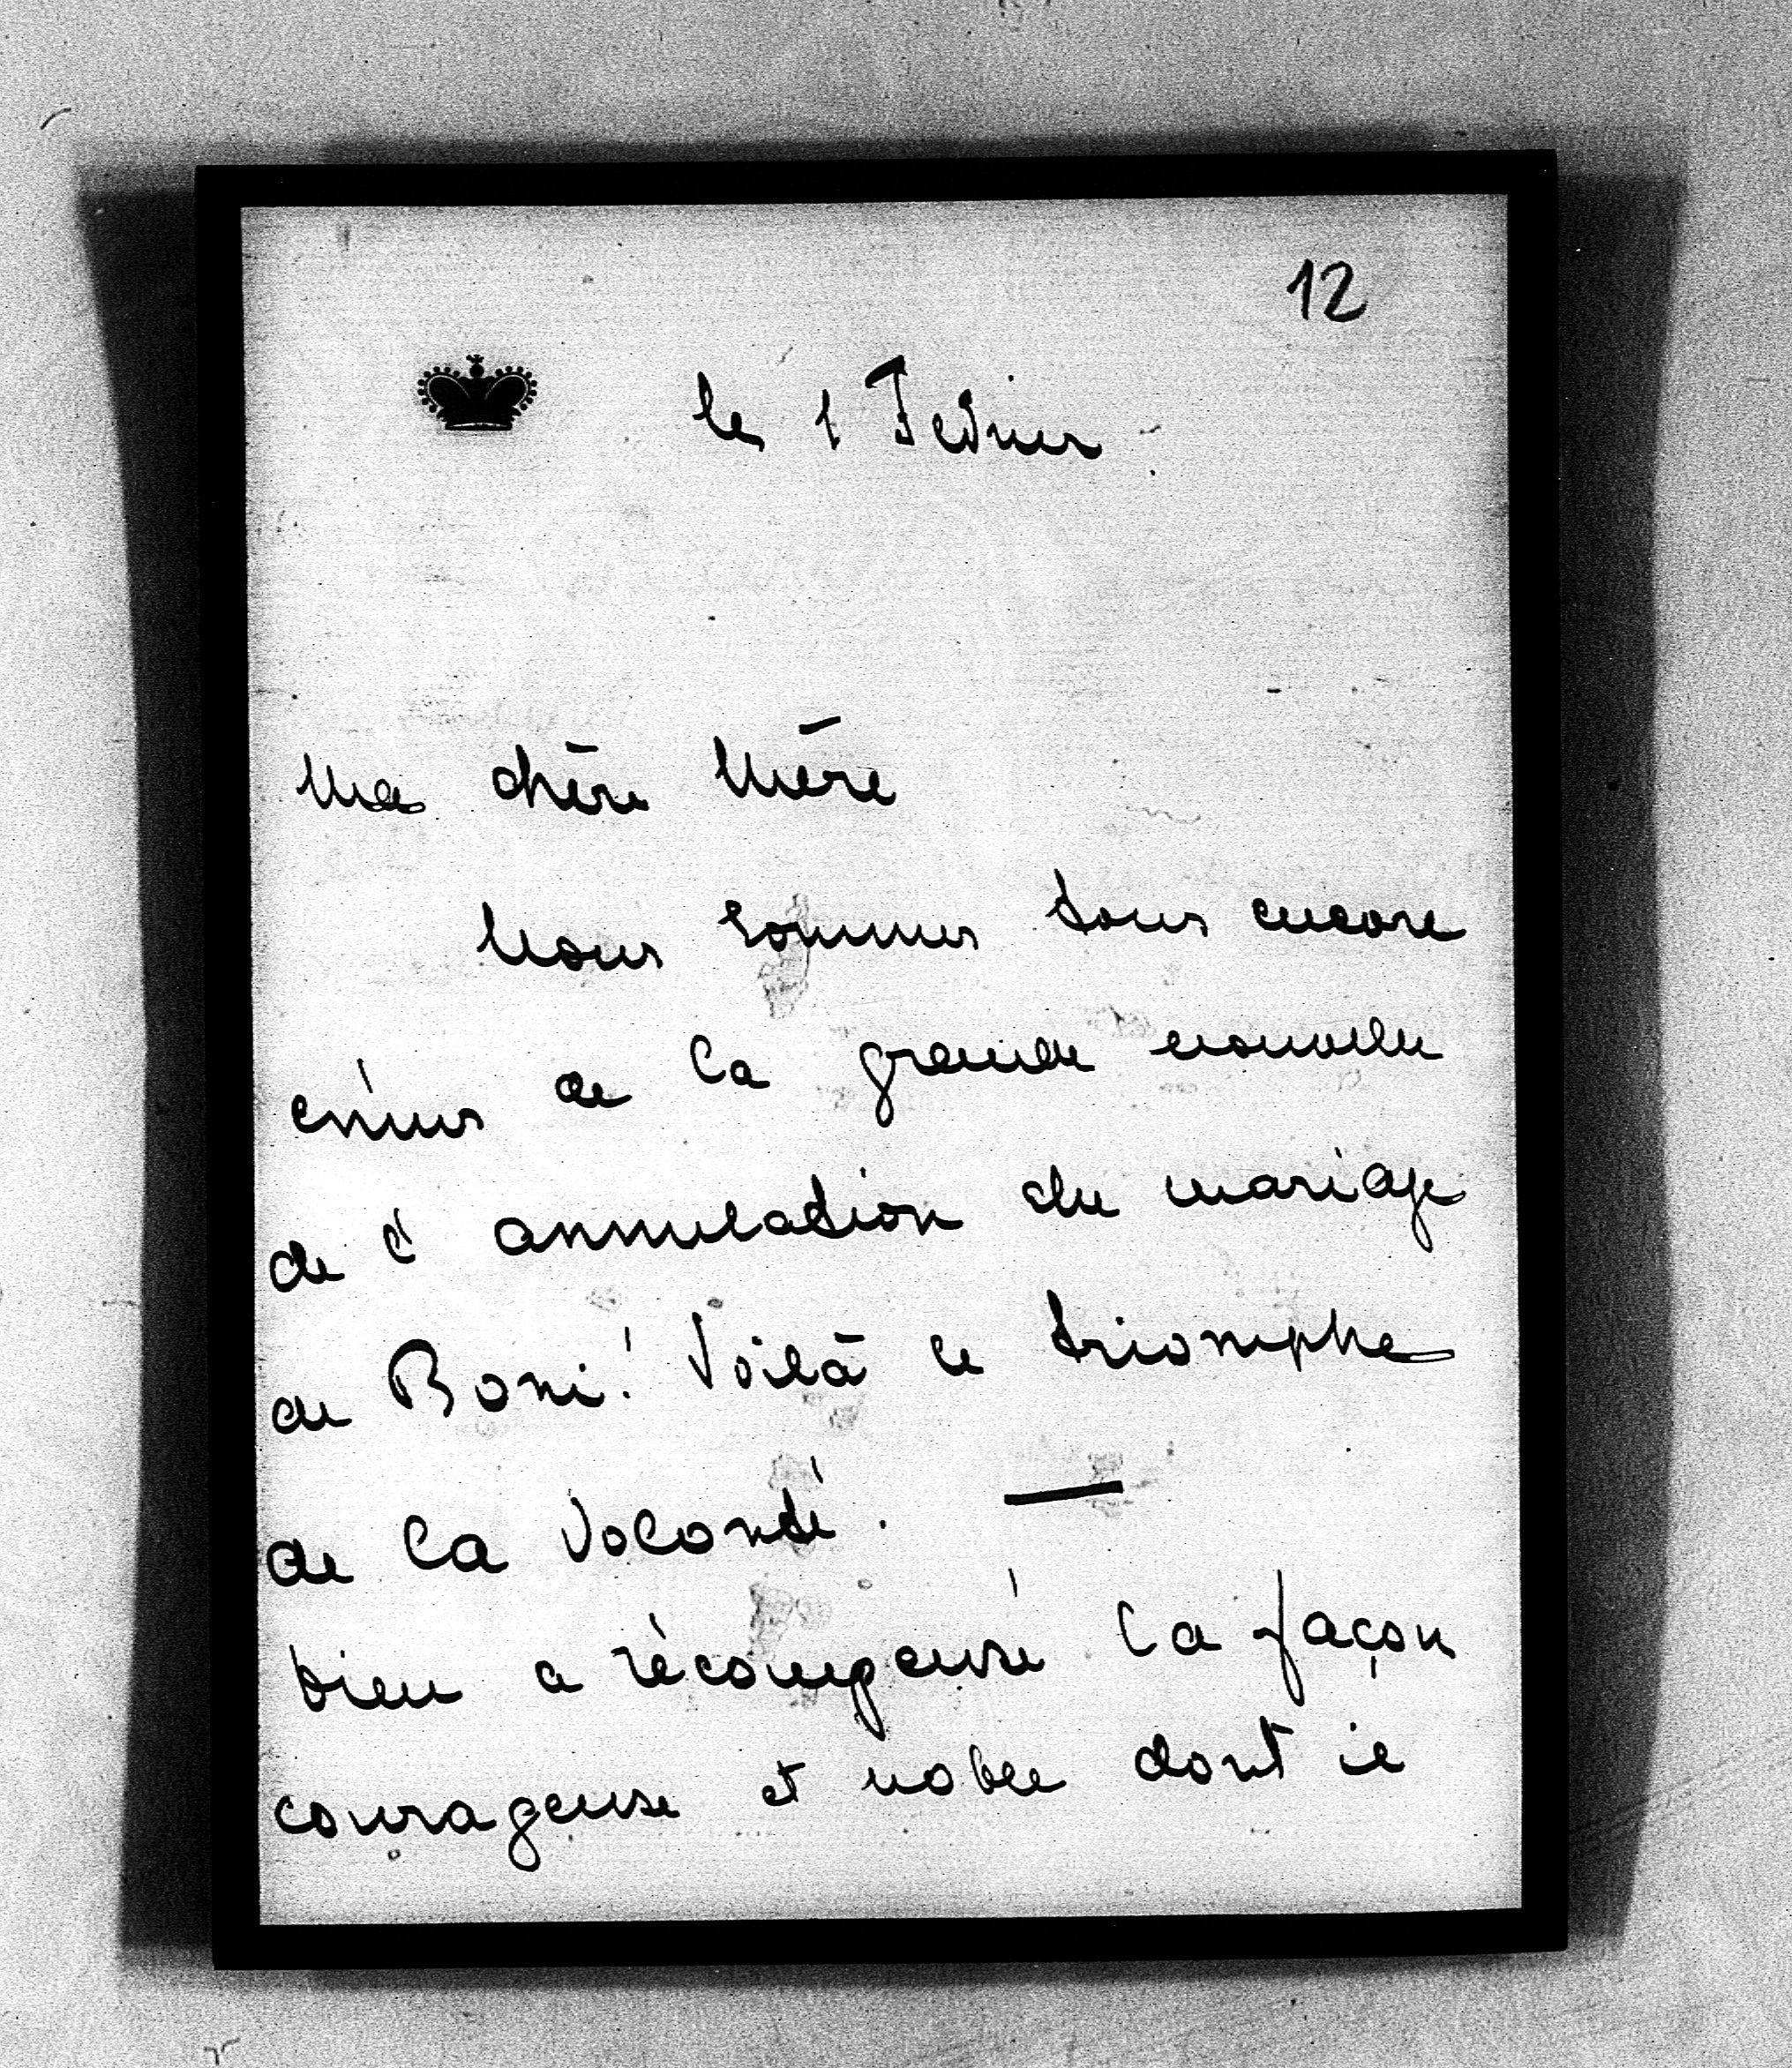 12
le 1 Fevrier
Ma chère Mère
Nous sommes tous encore
émus de la grande nouvelle
de l'annulation du mariage
de Boni! Voilà le triomphe
de la volonté. —
Dieu a récompensé la façon
courageuse et noble dont il